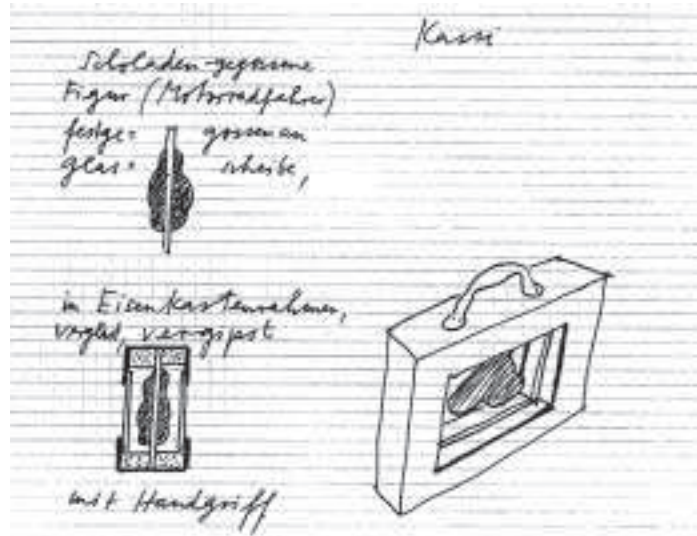 Kassi
Schokoladen-gegossene
Figur (Motorradfahrer)
festge= gossen an
glas= scheibe,
in Eisenkastenrahmen,
verglast, vergipst
mit Handgriff